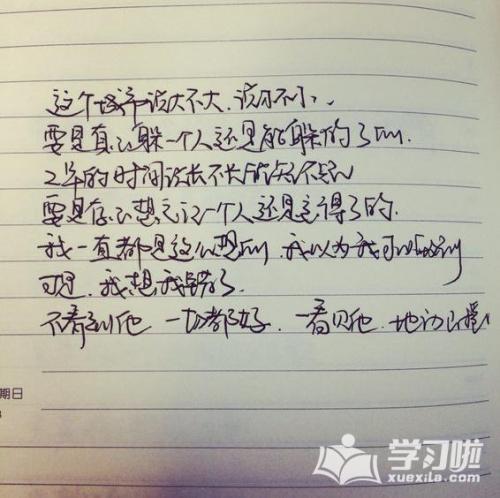 这个城市说大不大,说小不小、
要是真心躲一个人还是能躲的了的.
2年的时间说长不长说短不短
要是存心想忘记一个人还是忘得了的.
我一直都是这么想的,我以为我可以做到
可是,我想我错了.
不看到他 一切都好.一看见他,地动山摇
期日
学习啦
xuexila.com